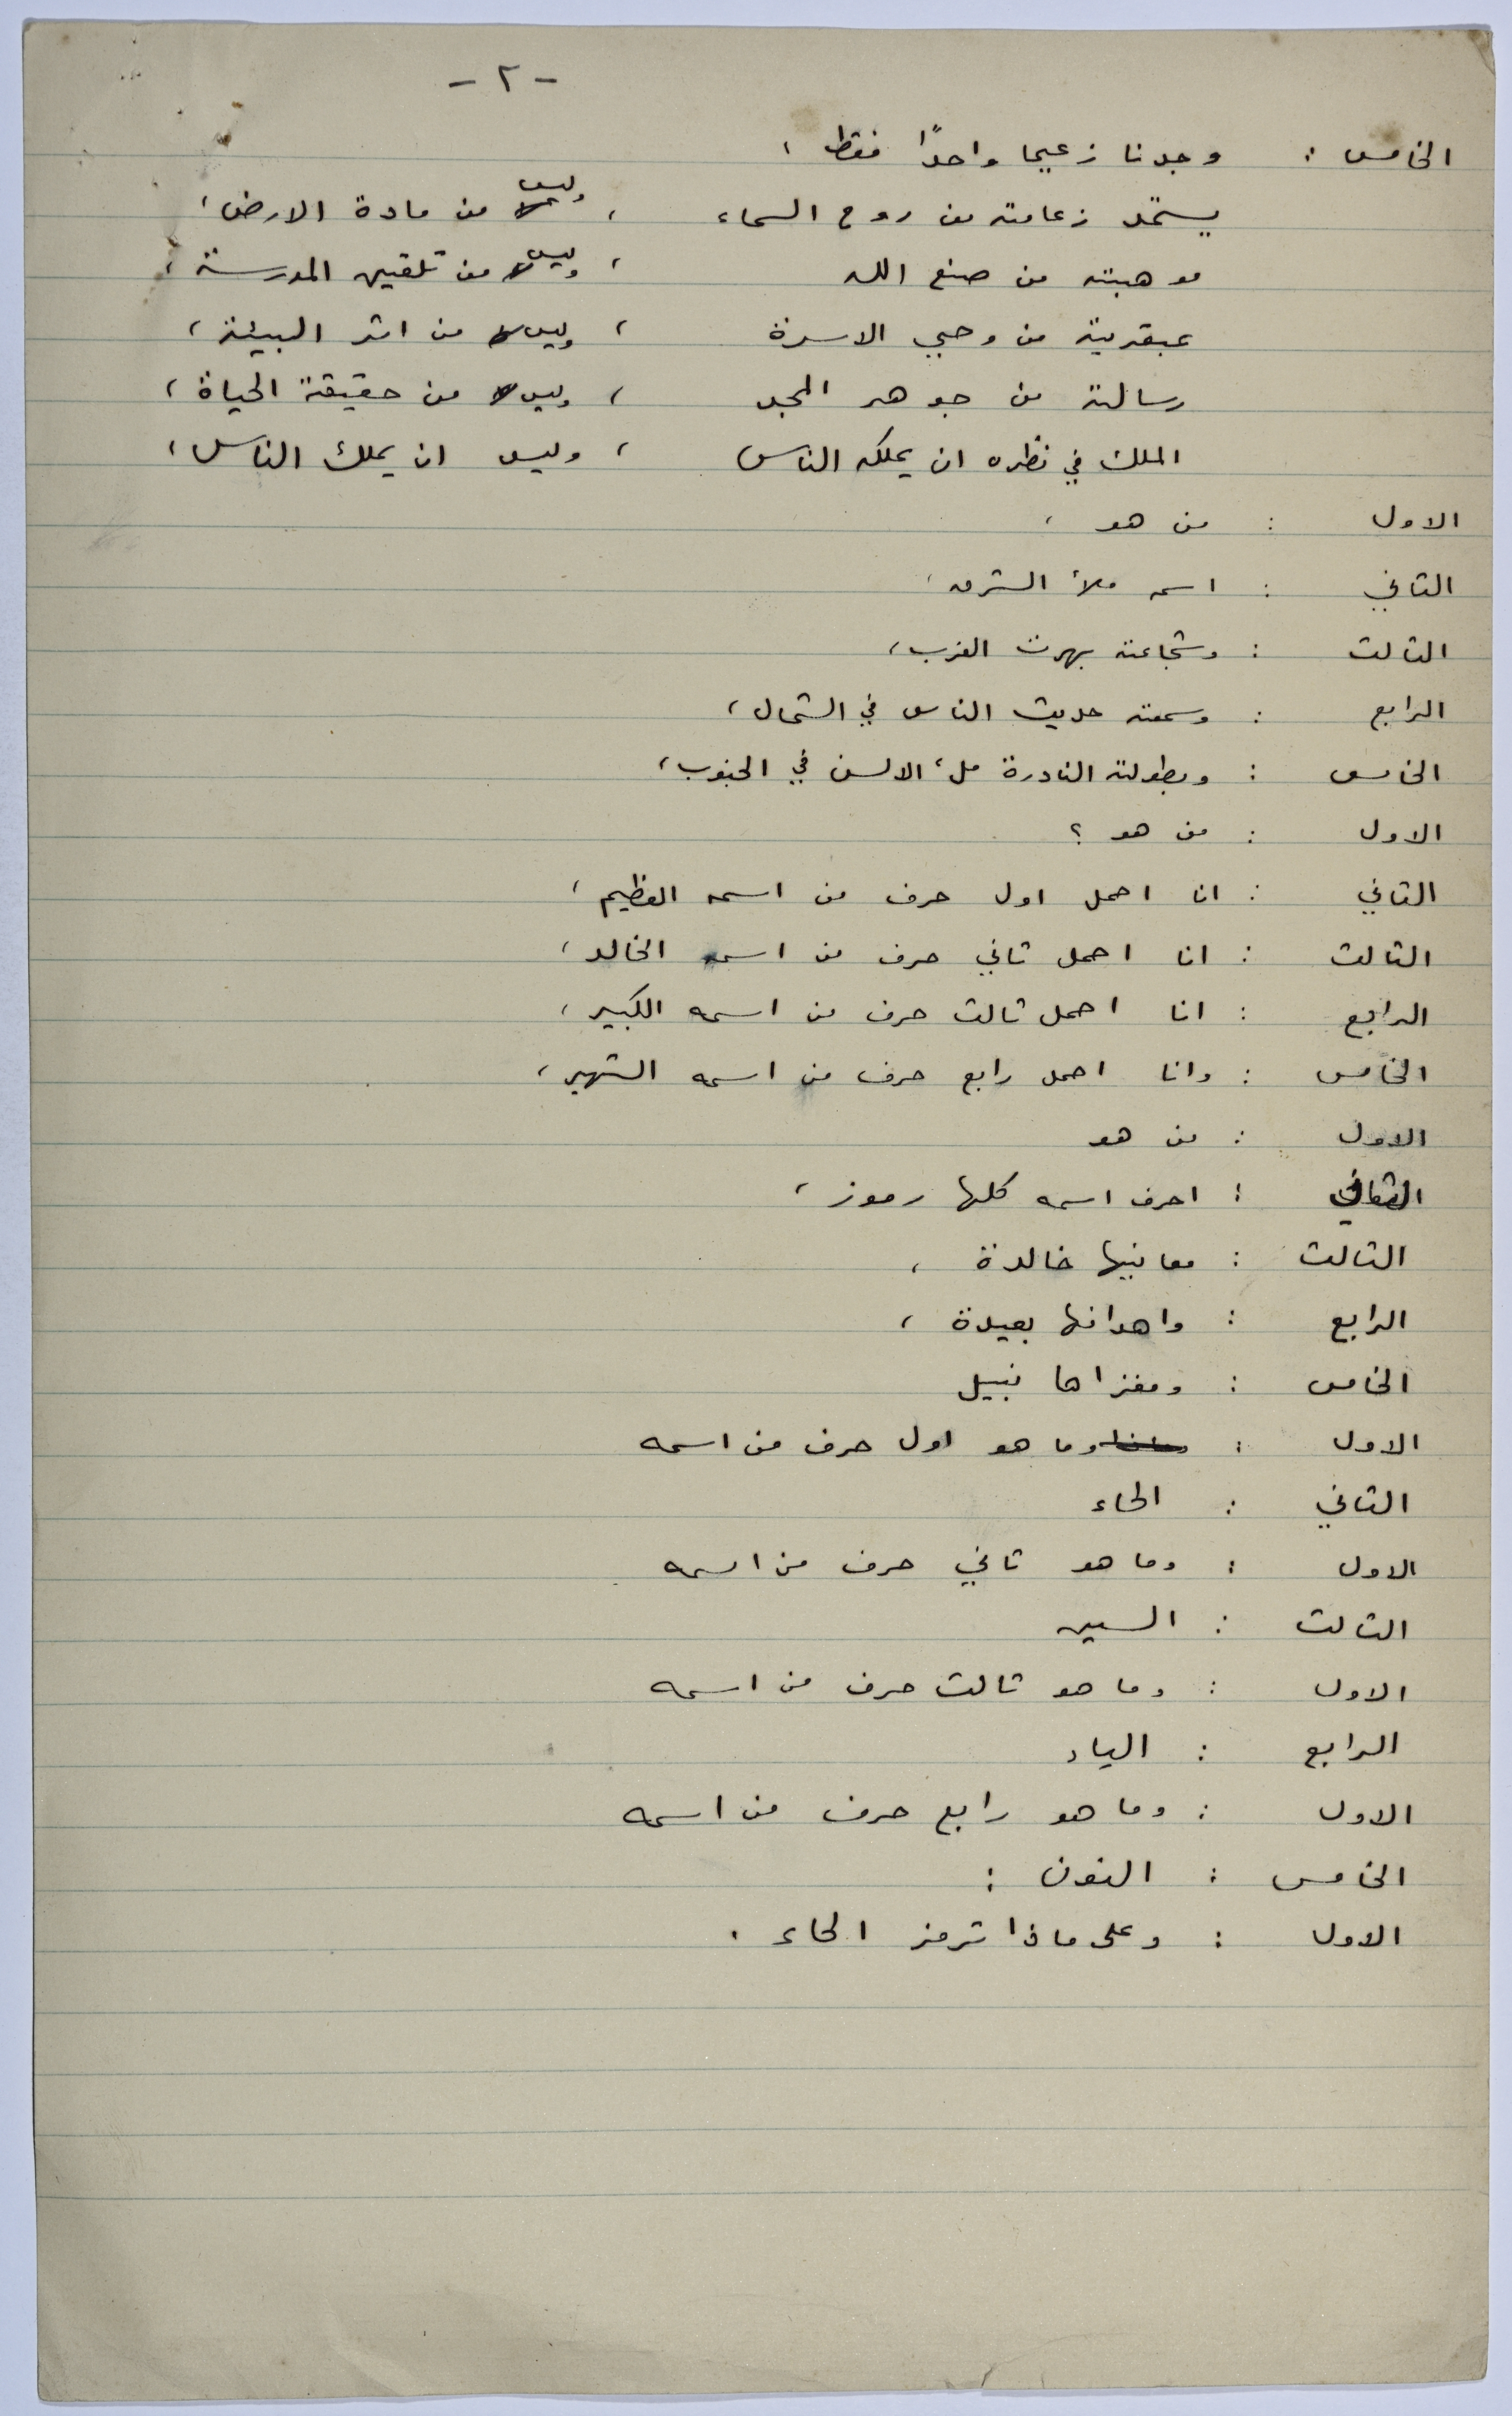 - ٢ -
الخامس : وجدنا زعيما واحدًا فقط ،
يستمد زعامته من روح السماء ، وليس من مادة الارض ،
موهبته من صنع الله ، وليس من تلقين المدرسة ،
عبقريته من وحي الاسرة ، وليس من اثر البيئة ،
رسالته من جوهر المجد ، وليس من حقيقة الحياة ،
الملك في نظره ان يملكه الناس ، وليس ان يملك الناس ،
الاول : من هو ،
الثاني : اسمه ملأ الشرق ،
الثالث : وشجاعته بهرت الغرب ،
الرابع : وسمعته حديث الناس في الشمال ،
الخامس : وبطولته النادرة ملء الالسن في الجنوب ،
الاول : من هو ؟
الثاني : انا احمل اول حرف من اسمه العظيم ،
الثالث : انا احمل ثاني حرف من اسمه الخالد ،
الرابع : انا احمل ثالث حرف من اسمه الكبير ،
الخامس : وانا احمل رابع حرف من اسمه الشهير ،
الاول : من هو
الثاني : احرف اسمه كلها رموز ،
الثالث : معانيها خالدة ،
الرابع : واهدافها بعيدة ،
الخامس : ومغزاها نبيل
الاول : وما هو اول حرف من اسمه
الثاني : الحاء
الاول : وما هو ثاني حرف من اسمه
الثالث : السين
الاول : وما هو ثالث حرف من اسمه
الرابع : الياء
الاول : وما هو رابع حرف من اسمه
الخامس : النون :
الاول : وعلى ماذا ترمز الحاء .